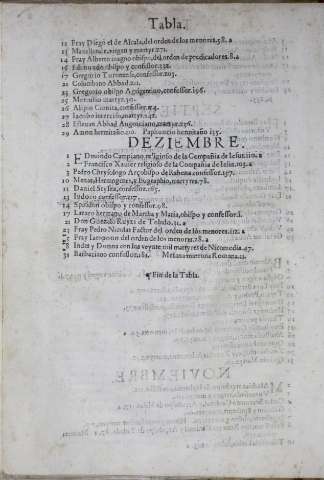 Tabla.
12 Fray Diego el de Alcala, del orden de los menores. 58. a
13 Maxellende, virgen y martyr. 271.
14 Fray Alberto magno obispo, del orden de predicadores. 8. a
16 Edimundo obispo y confessor. 238.
17 Gregorio Turonense, confessor. 203.
21 Columbano Abbad. 211.
23 Gregorio obispo Agrigentino, confessor. 196.
25 Mercurio martyr. 30.
26 Alipio Cionita, confessor. 114.
27 Iacobo interciso, martyr. 147.
28 Estevan Abbad martyr. 226.
29 Anton hermitaño. 110. Paphuncio hermitaño 135.
DEZIEMBRE.
1 EDmundo Campiano, religioso de la Compañia de Iesus. 110. a
2 Francisco Xavier religioso de la Compañia de Iesus. 103. a
3 Pedro Chrysologo Arçobispo de Rabena confessor. 307.
10 Menas, Hermogenes, y Eugraphio, martyres. 78.
11 Daniel Stylita, confessor. 165.
13 Iudoco confessor. 217.
14 Spiridion obispo y confessor. 98.
17 Lazaro hermano de Martha y Maria, obispo y confessor. 1.
21 Don Gonzalo Ruyz de Toledo. 21. a
23 Fray Pedro Nicolas Factor del orden de los menores. 112. a
28 Indes y Domna con los veynte mil martyres de Nicomedia. 47.
31 Barbaciano confessor. 81. Melania matrona Romana. 13.
¶ Fin de la Tabla.